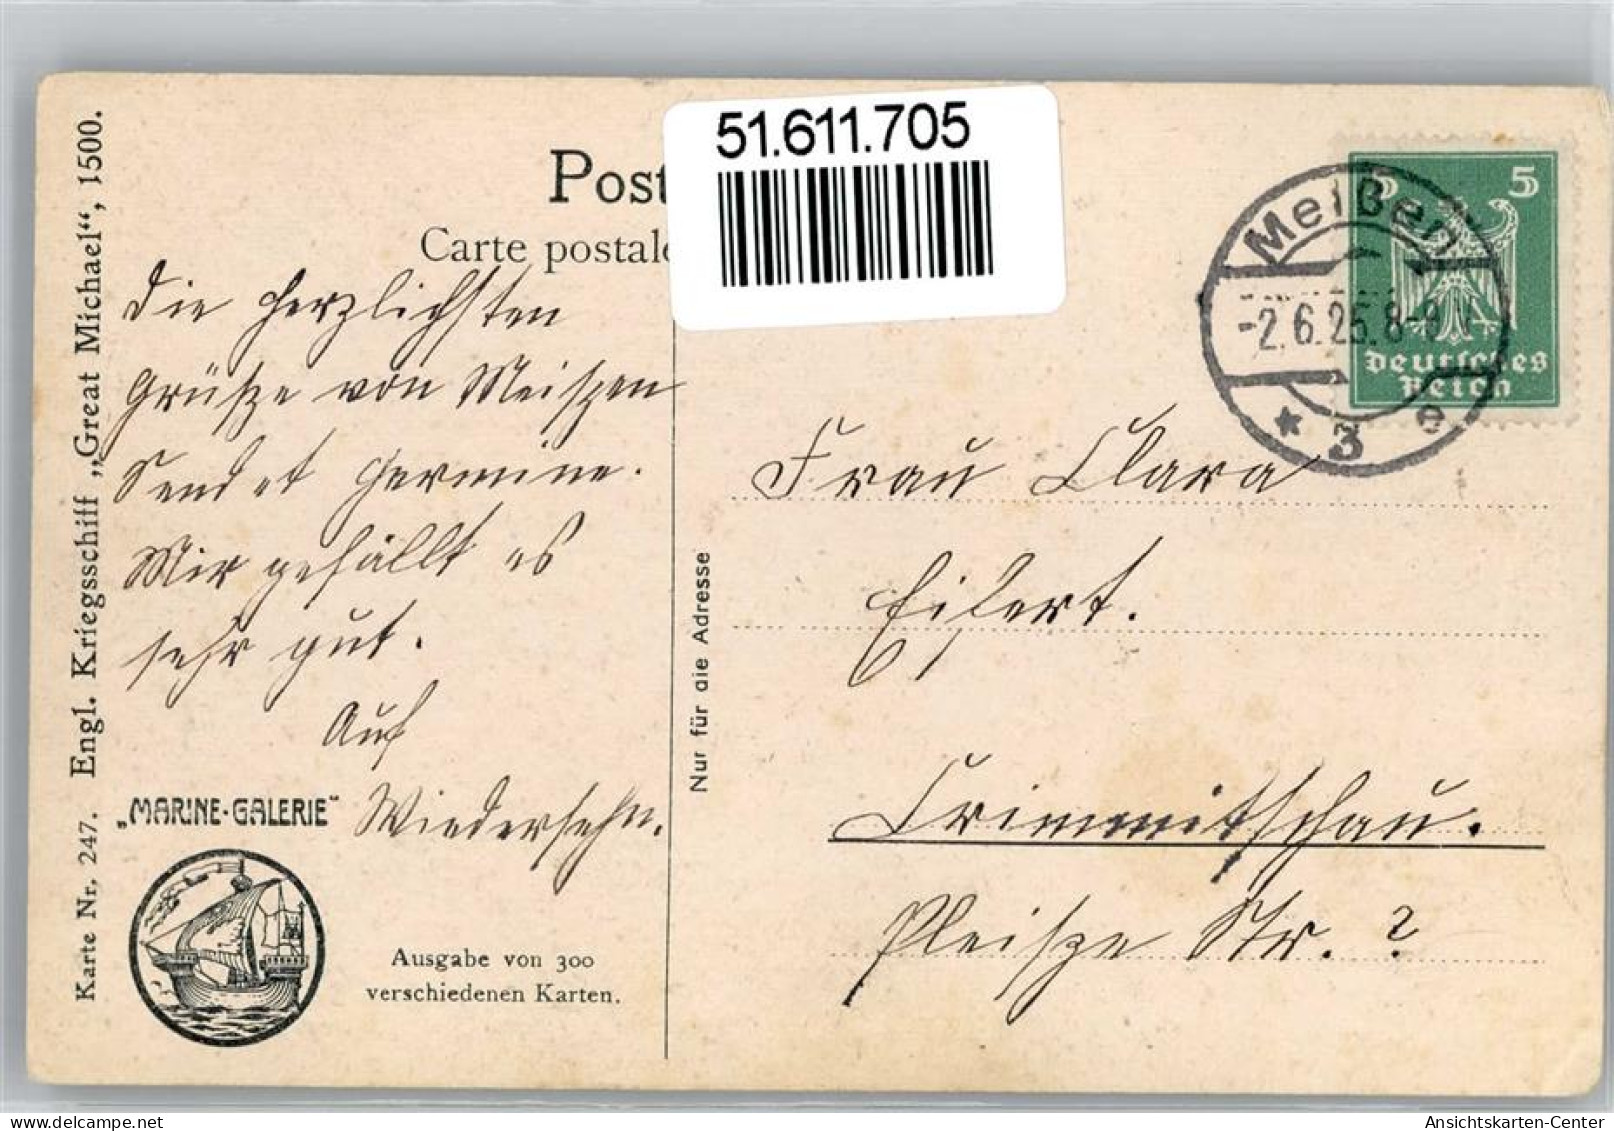 51.611.705
Post
Carte postale
Meißen
-2.6.25.8-9 V
* 3 e
5 5
Deutsches
Reich
Die herzlichsten
Grüsze von Meiszen
Sendet Hermine.
Mir gefällt es
sehr gut.
Auf
Wiedersehn.
Frau Clara
Eilert.
Crimmitschau.
Pleisze Str. ?
Nur für die Adresse
Karte Nr. 247. Engl. Kriegsschiff „Great Michael“, 1500.
„MARINE-GALERIE“
Ausgabe von 300
verschiedenen Karten.
Ansichtskarten-Center